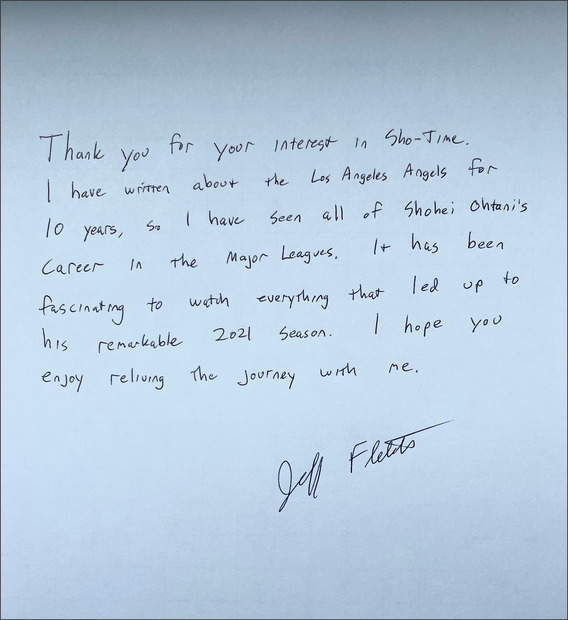 Thank you for your interest in Sho-Time.
I have written about the Los Angeles Angels for
10 years, so I have seen all of Shohei Ohtani's
career in the Major Leagues. It has been
fascinating to watch everything that led up to
his remarkable 2021 season. I hope you
enjoy reliving the journey with me.
Jeff Fletcher